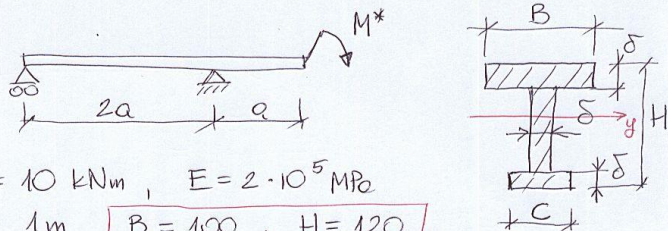 M*
B
δ
2a
a
δ
y
H
δ
= 10 kNm, E = 2·10⁵ MPa
C
1m B = 100, H = 120